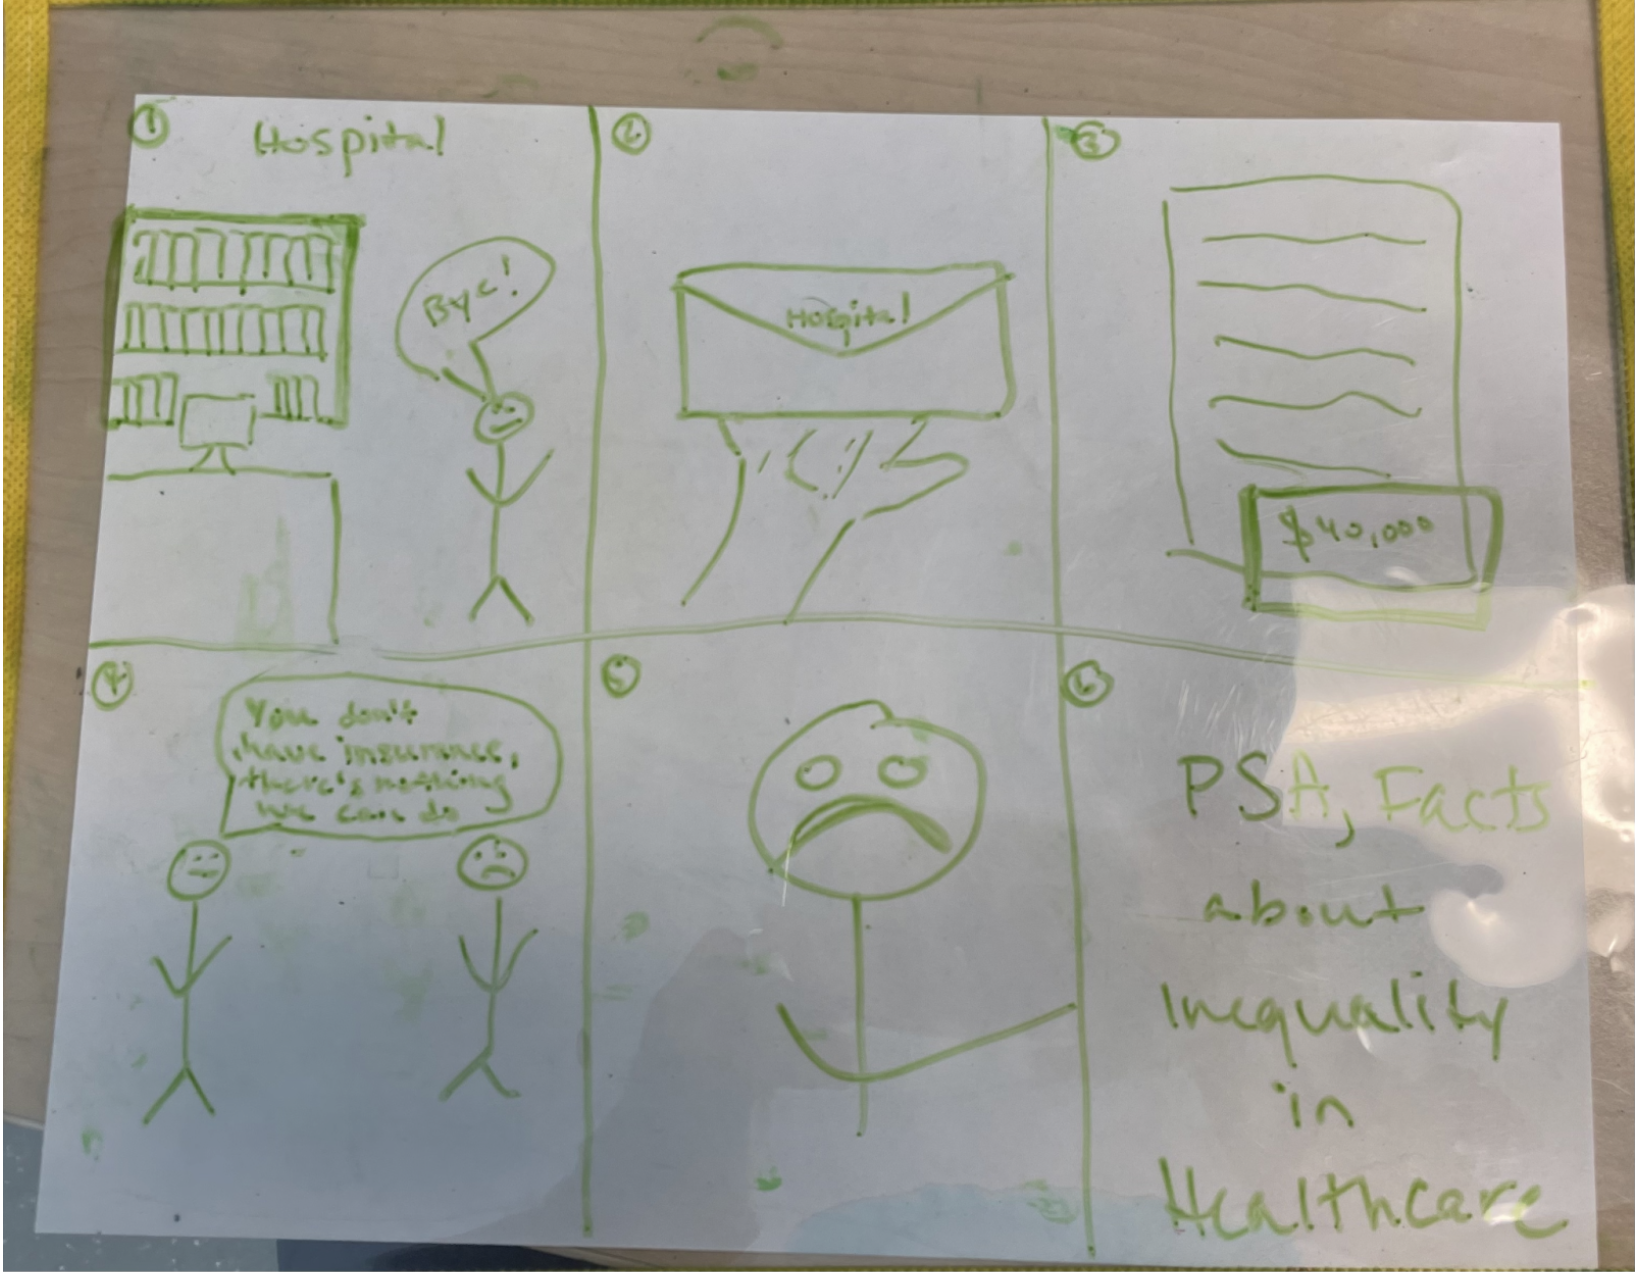 ①
Hospital
Bye!
②
Hospital
③
$40,000
④
You don't
have insurance,
there's nothing
we can do
⑤
⑥
PSA, Facts
about
Inequality
in
Healthcare